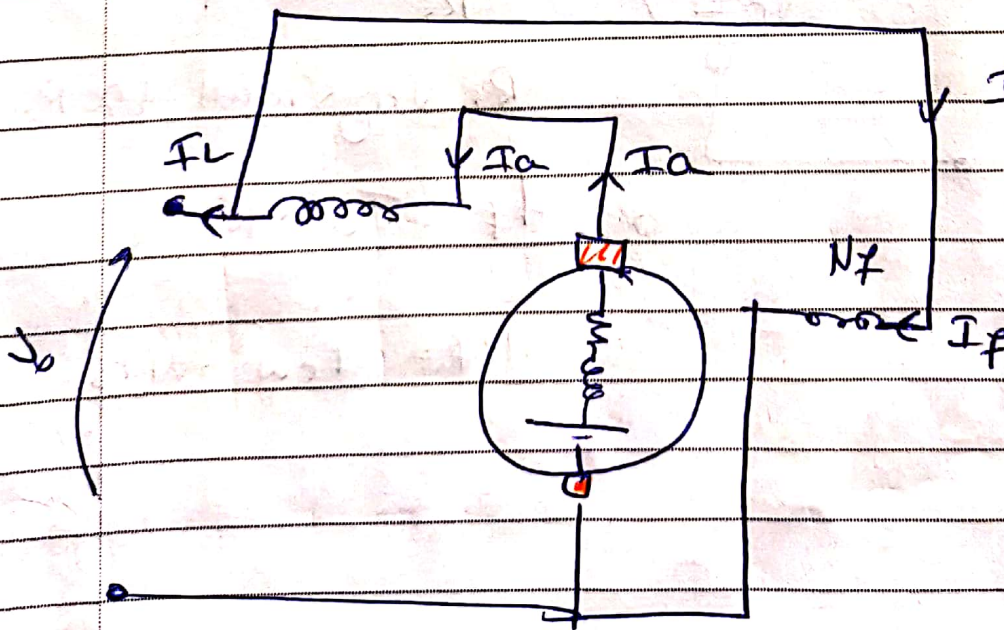 I
IL
Ia
Ia
Nf
If
Vo